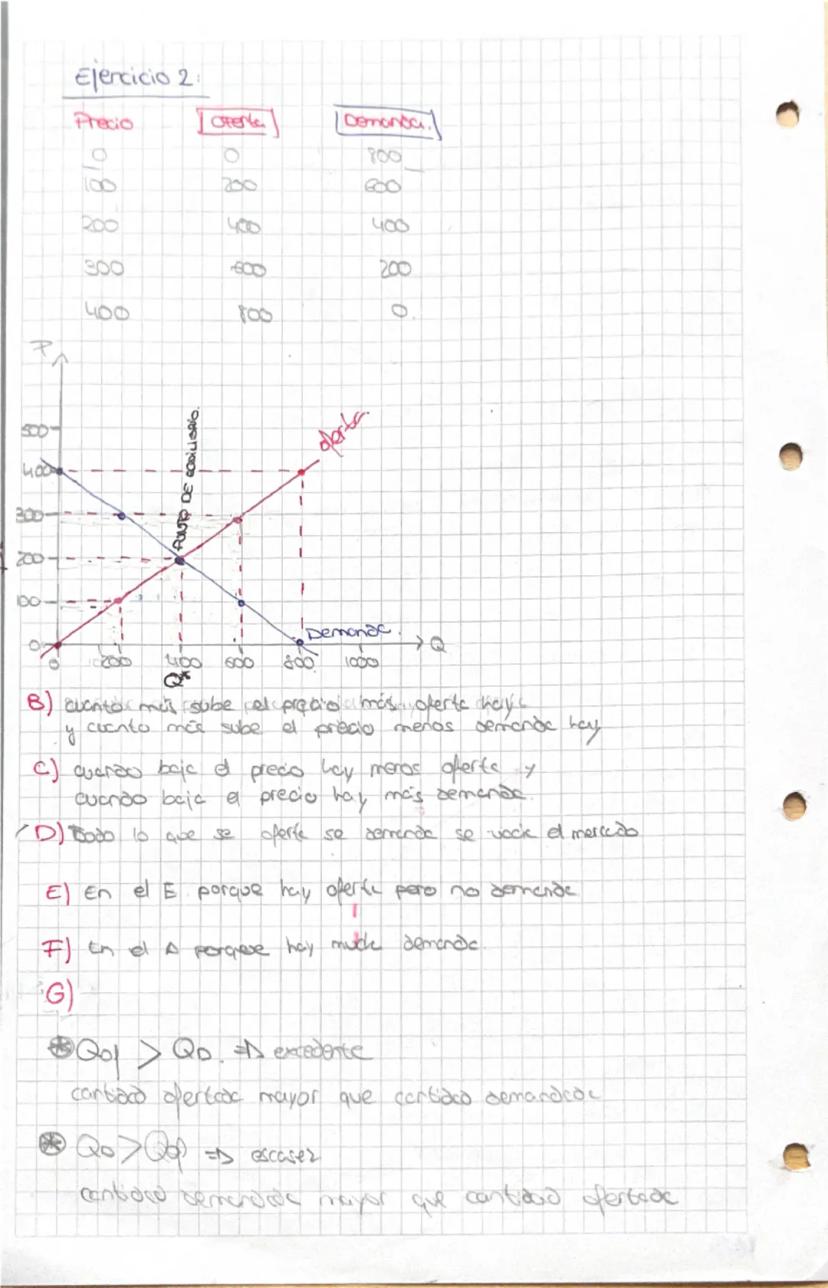 Ejercicio 2:
Precio Oferta Demanda.
0 0 800
100 200 600
200 400 400
300 600 200
400 800 0.
P
500
400
300
200
100
0
PUNTO DE EQUILIBRIO.
oferta
Demanda.
Q
0 200 400 600 800 1000
Q*
B) cuanto más sube el precio más oferta hay
y cuanto más sube el precio menos demanda hay
C) cuando baja el precio hay menos oferta y
cuando baja el precio hay más demanda.
D) Todo lo que se oferta se demanda se vacia el mercado
E) En el E porque hay oferta pero no demanda
F) En el A porque hay mucha demanda.
G)
Qof > QD. => excedente
cantidad ofertada mayor que cantidad demandada
QD > Qof => escasez
cantidad demandada mayor que cantidad ofertada